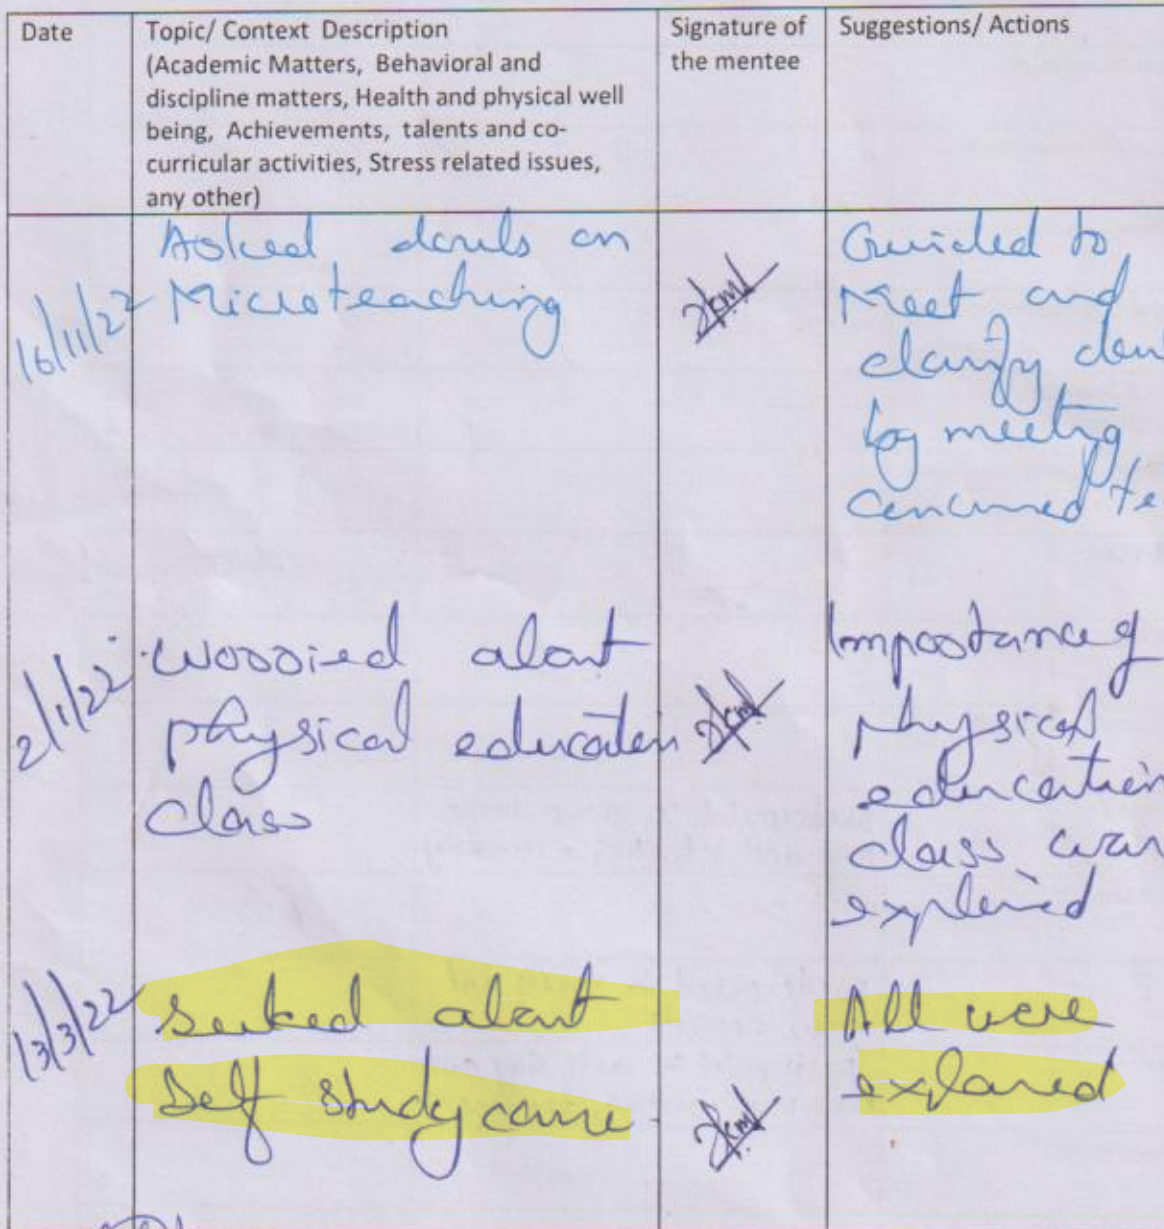 Date
Topic/ Context Description
(Academic Matters, Behavioral and
discipline matters, Health and physical well
being, Achievements, talents and co-
curricular activities, Stress related issues,
any other)
Signature of
the mentee
Suggestions/ Actions
16/11/22
Asked douls on
Microteaching
Guided to
Meet and
clarify
by meeting
2/1/22
Worried about
physical education
class
Importance of
physical
education
class
explained
13/3/22
Seeked about
Self study
All were
explained